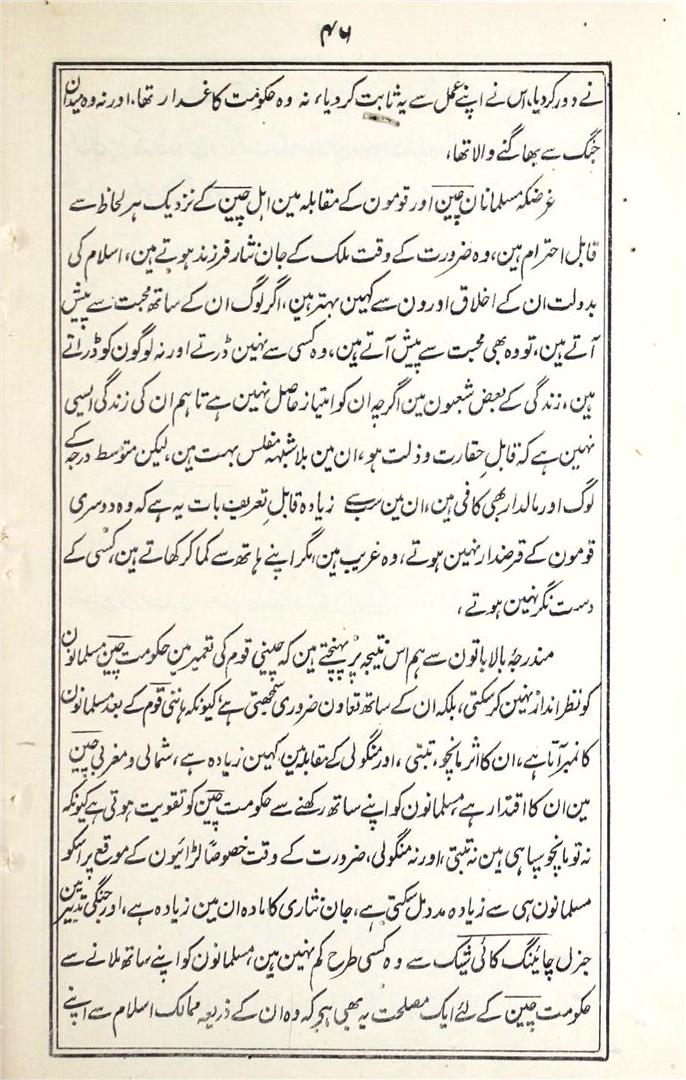 ۴۶
نے دور کر دیا، اس نے اپنے عمل سے یہ ثابت کر دیا، نہ وہ حکومت کا غدار تھا، اور نہ وہ میدان
جنگ سے بھاگنے والا تھا،
غرضکہ مسلمانان چین اور قومون کے مقابلہ مین اہل چین کے نزدیک ہر لحاظ سے
قابل احترام ہین، وہ ضرورت کے وقت ملک کے جان نثار فرزند ہوتے ہین، اسلام کی
بدولت ان کے اخلاق اورون سے کہین بہتر ہین، اگر لوگ ان کے ساتھ محبت سے پیش
آتے ہین، تو وہ بھی محبت سے پیش آتے ہین، وہ کسی سے نہین ڈرتے اور نہ لوگون کو ڈراتے
ہین، زندگی کے بعض شعبون مین اگرچہ ان کو امتیاز حاصل نہین ہے تاہم ان کی زندگی ایسی
نہین ہے کہ قابلِ حقارت و ذلت ہو، ان مین بلا شبہہ مفلس بہت ہین، لیکن متوسط درجہ کے
لوگ اور مالدار بھی کافی ہین، ان مین سب سے زیادہ قابلِ تعریف بات یہ ہے کہ وہ دوسری
قومون کے قرضدار نہین ہوتے، وہ غریب ہین، مگر اپنے ہاتھ سے کما کر کھاتے ہین، کسی کے
دست نگر نہین ہوتے،
مندرجۂ بالا باتون سے ہم اس نتیجہ پر پہنچتے ہین کہ چینی قوم کی تعمیر مین حکومت چین مسلمانون
کو نظر انداز نہین کر سکتی، بلکہ ان کے ساتھ تعاون ضروری سمجھتی ہے، کیونکہ ہانتی قوم کے بعد مسلمانون
کا نمبر آتا ہے، ان کا اثر مانچو، تبتی، اور منگولی کے مقابلہ مین کہین زیادہ ہے، شمالی و مغربی چین
مین ان کا اقتدار ہے، مسلمانون کو اپنے ساتھ رکھنے سے حکومت چین کو تقویت ہوتی ہے کیونکہ
نہ تو مانچو سپاہی ہین نہ تبتی، اور نہ منگولی، ضرورت کے وقت خصوصاً لڑائیون کے موقع پر اسکو
مسلمانون ہی سے زیادہ مدد مل سکتی ہے، جان نثاری کا مادہ ان مین زیادہ ہے، اور جنگی تدبیر مین
جنرل چائنگ کائی شیک سے وہ کسی طرح کم نہین ہین، مسلمانون کو اپنے ساتھ ملانے سے
حکومت چین کے لئے ایک مصلحت یہ بھی ہے کہ وہ ان کے ذریعہ ممالک اسلام سے اپنے